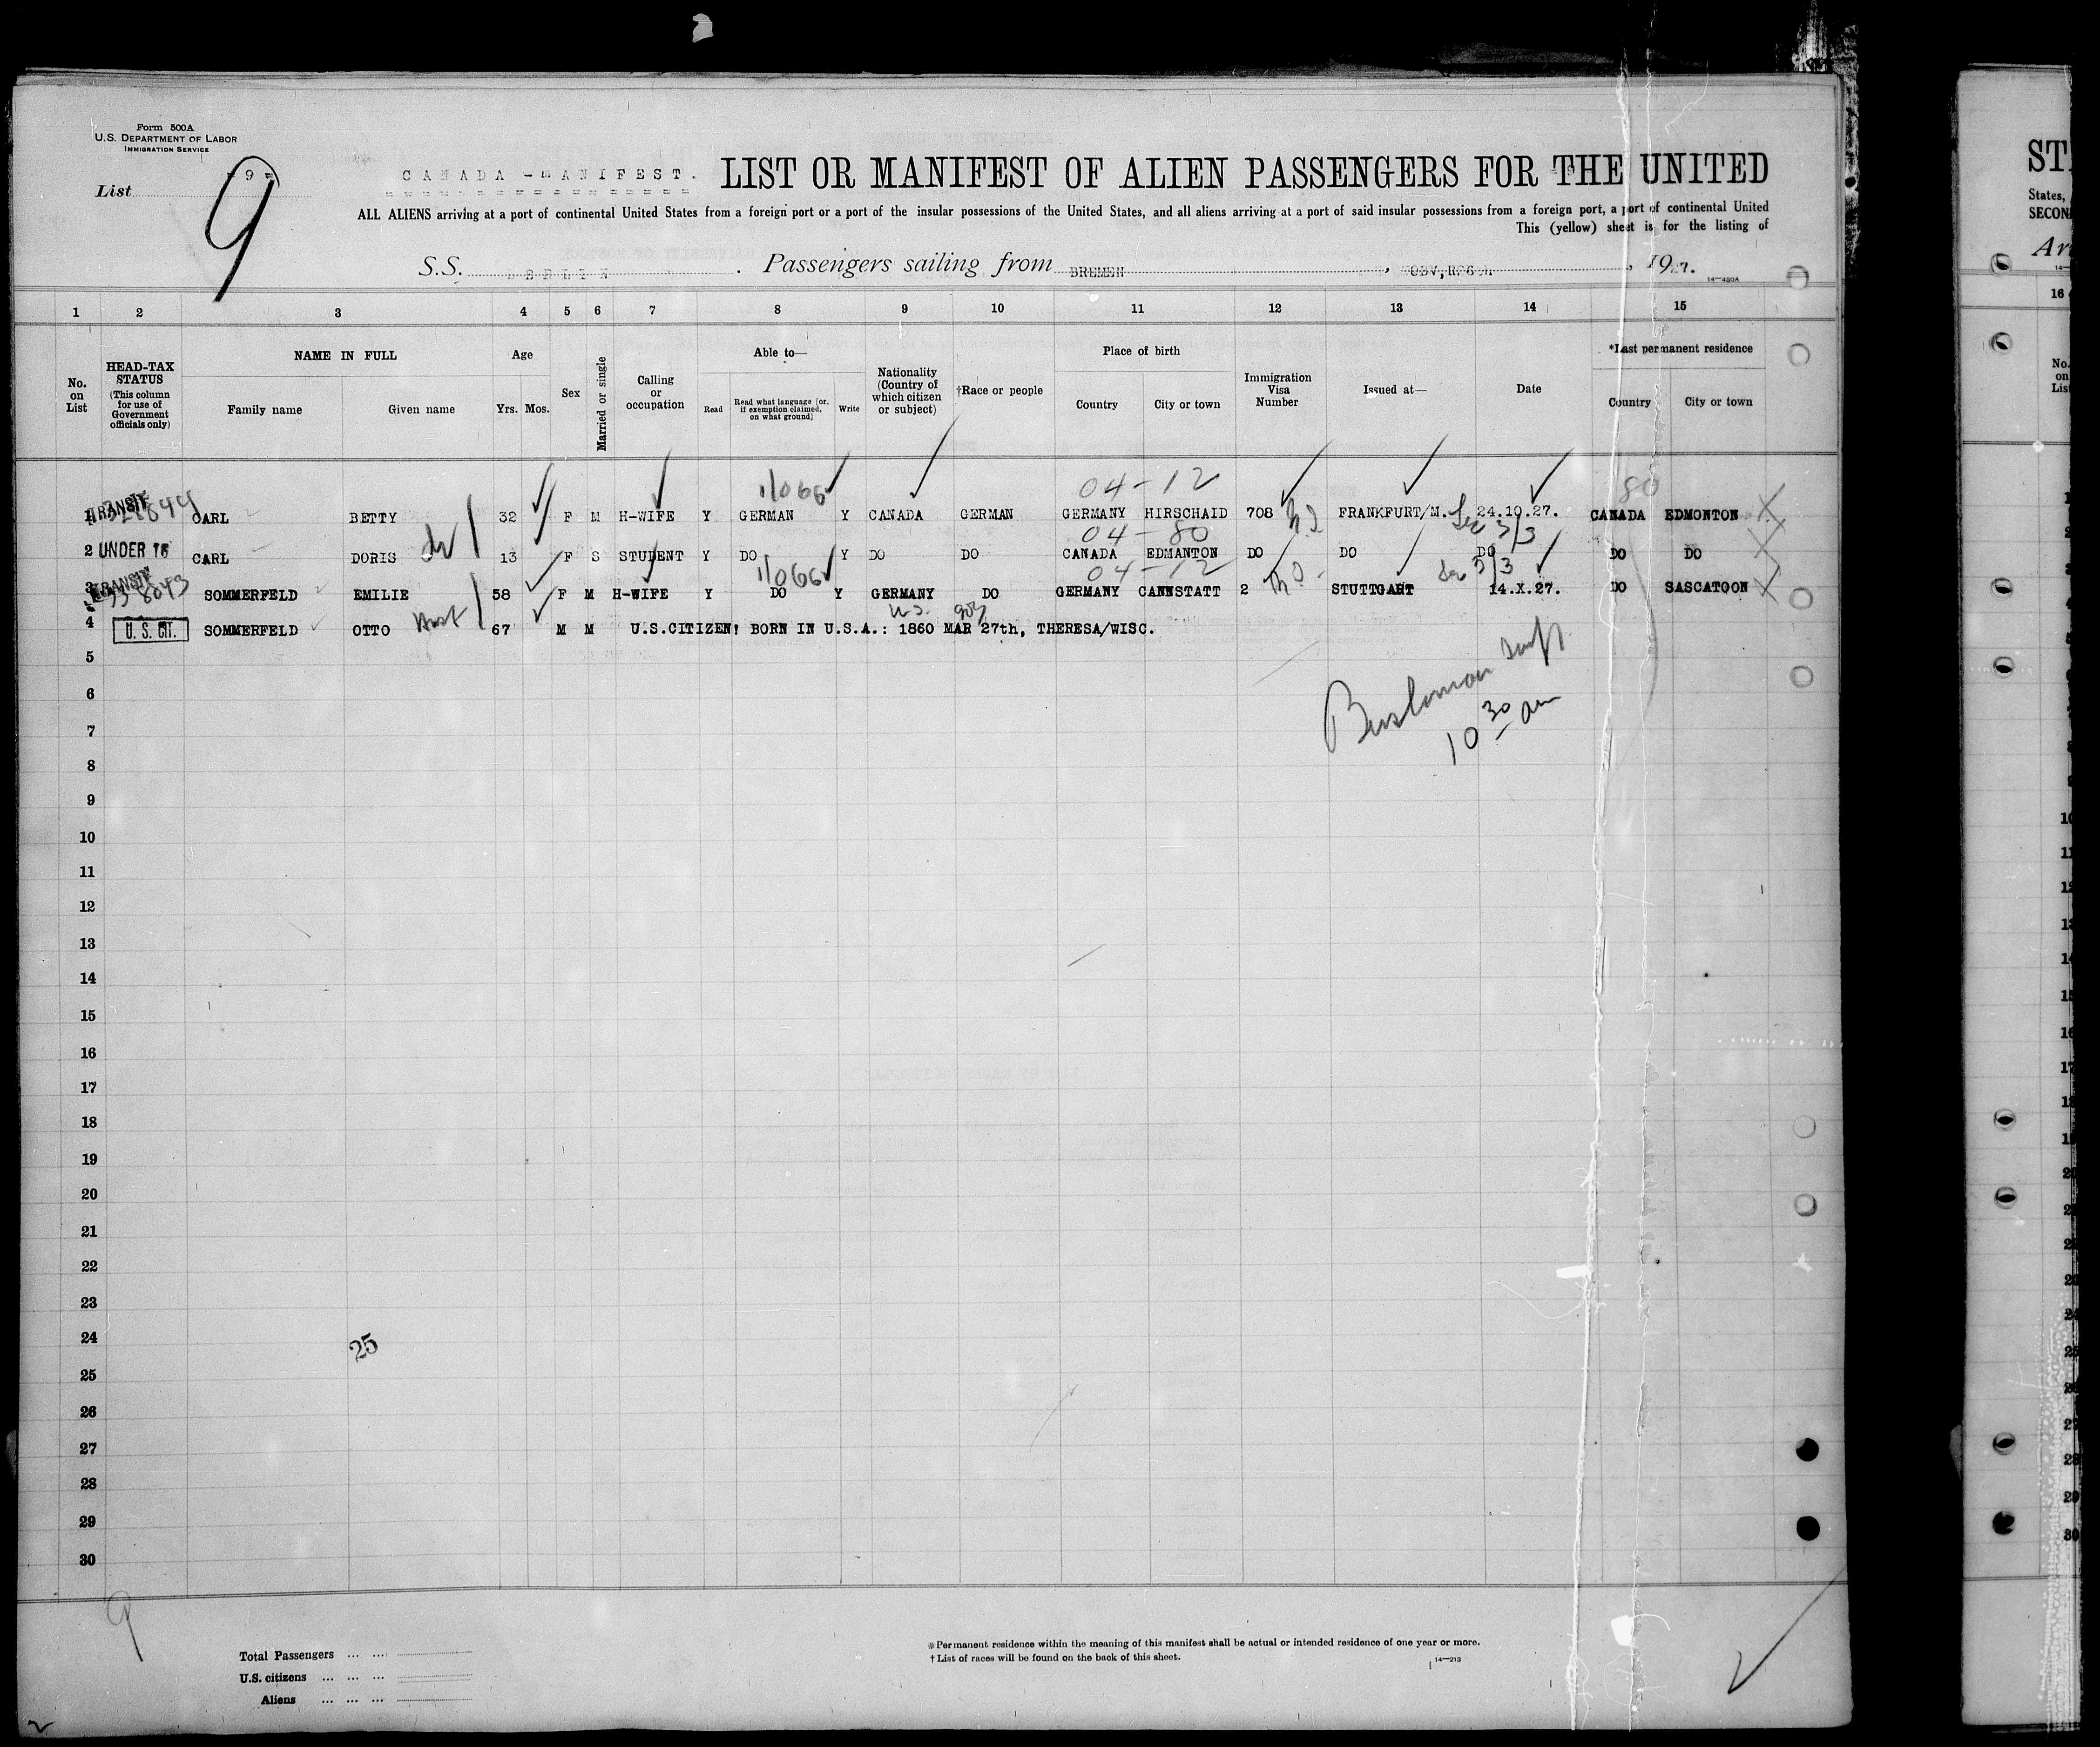 Form 500A
U.S. DEPARTMENT OF LABOR
IMMIGRATION SERVICE
List - 9 -
9
CANADA - MANIFEST.
LIST OR MANIFEST OF ALIEN PASSENGERS FOR THE UNITED
ALL ALIENS arriving at a port of continental United States from a foreign port or a port of the insular possessions of the United States, and all aliens arriving at a port of said insular possessions from a foreign port, a port of continental United
This (yellow) sheet is for the listing of
S.S. BERLIN. Passengers sailing from BREMEN, , 1927.
14—480A
1 2 3 4 5 6 7 8 9 10 11 12 13 14 15
No. on List
HEAD-TAX STATUS (This column for use of Government officials only)
NAME IN FULL
Family name Given name
Age
Yrs. Mos.
Sex
Married or single
Calling or occupation
Able to—
Read Read what language [or, if exemption claimed, on what ground] Write
Nationality (Country of which citizen or subject)
†Race or people
Place of birth
Country City or town
Immigration Visa Number
Issued at—
Date
*Last permanent residence
Country City or town
11066 04-12 80
1 TRANSIT CARL BETTY 32 F M H-WIFE Y GERMAN Y CANADA GERMAN GERMANY HIRSCHAID 708 FRANKFURT/M. 24.10.27. CANADA EDMONTON
04-80 Sec 3/3
2 UNDER 16 CARL DORIS 13 F S STUDENT Y DO Y DO DO CANADA EDMANTON DO DO DO DO DO
11066 04-12 Sec 3/3
3 TRANSIT SOMMERFELD EMILIE 58 F M H-WIFE Y DO Y GERMANY DO GERMANY CANNSTATT 2 STUTTGART 14.X.27. DO SASCATOON
U.S.
4 U.S. CIT. SOMMERFELD OTTO 67 M M U.S.CITIZEN! BORN IN U.S.A.: 1860 MAR 27th, THERESA/WISC.
5
6
7
10 30 am
8
9
10
11
12
13
14
15
16
17
18
19
20
21
22
23
24
25
25
26
27
28
29
30
9
Total Passengers
U.S. citizens
Aliens
* Permanent residence within the meaning of this manifest shall be actual or intended residence of one year or more.
† List of races will be found on the back of this sheet.
14—213
ST
States,
SECON
Ar
16
No. on List